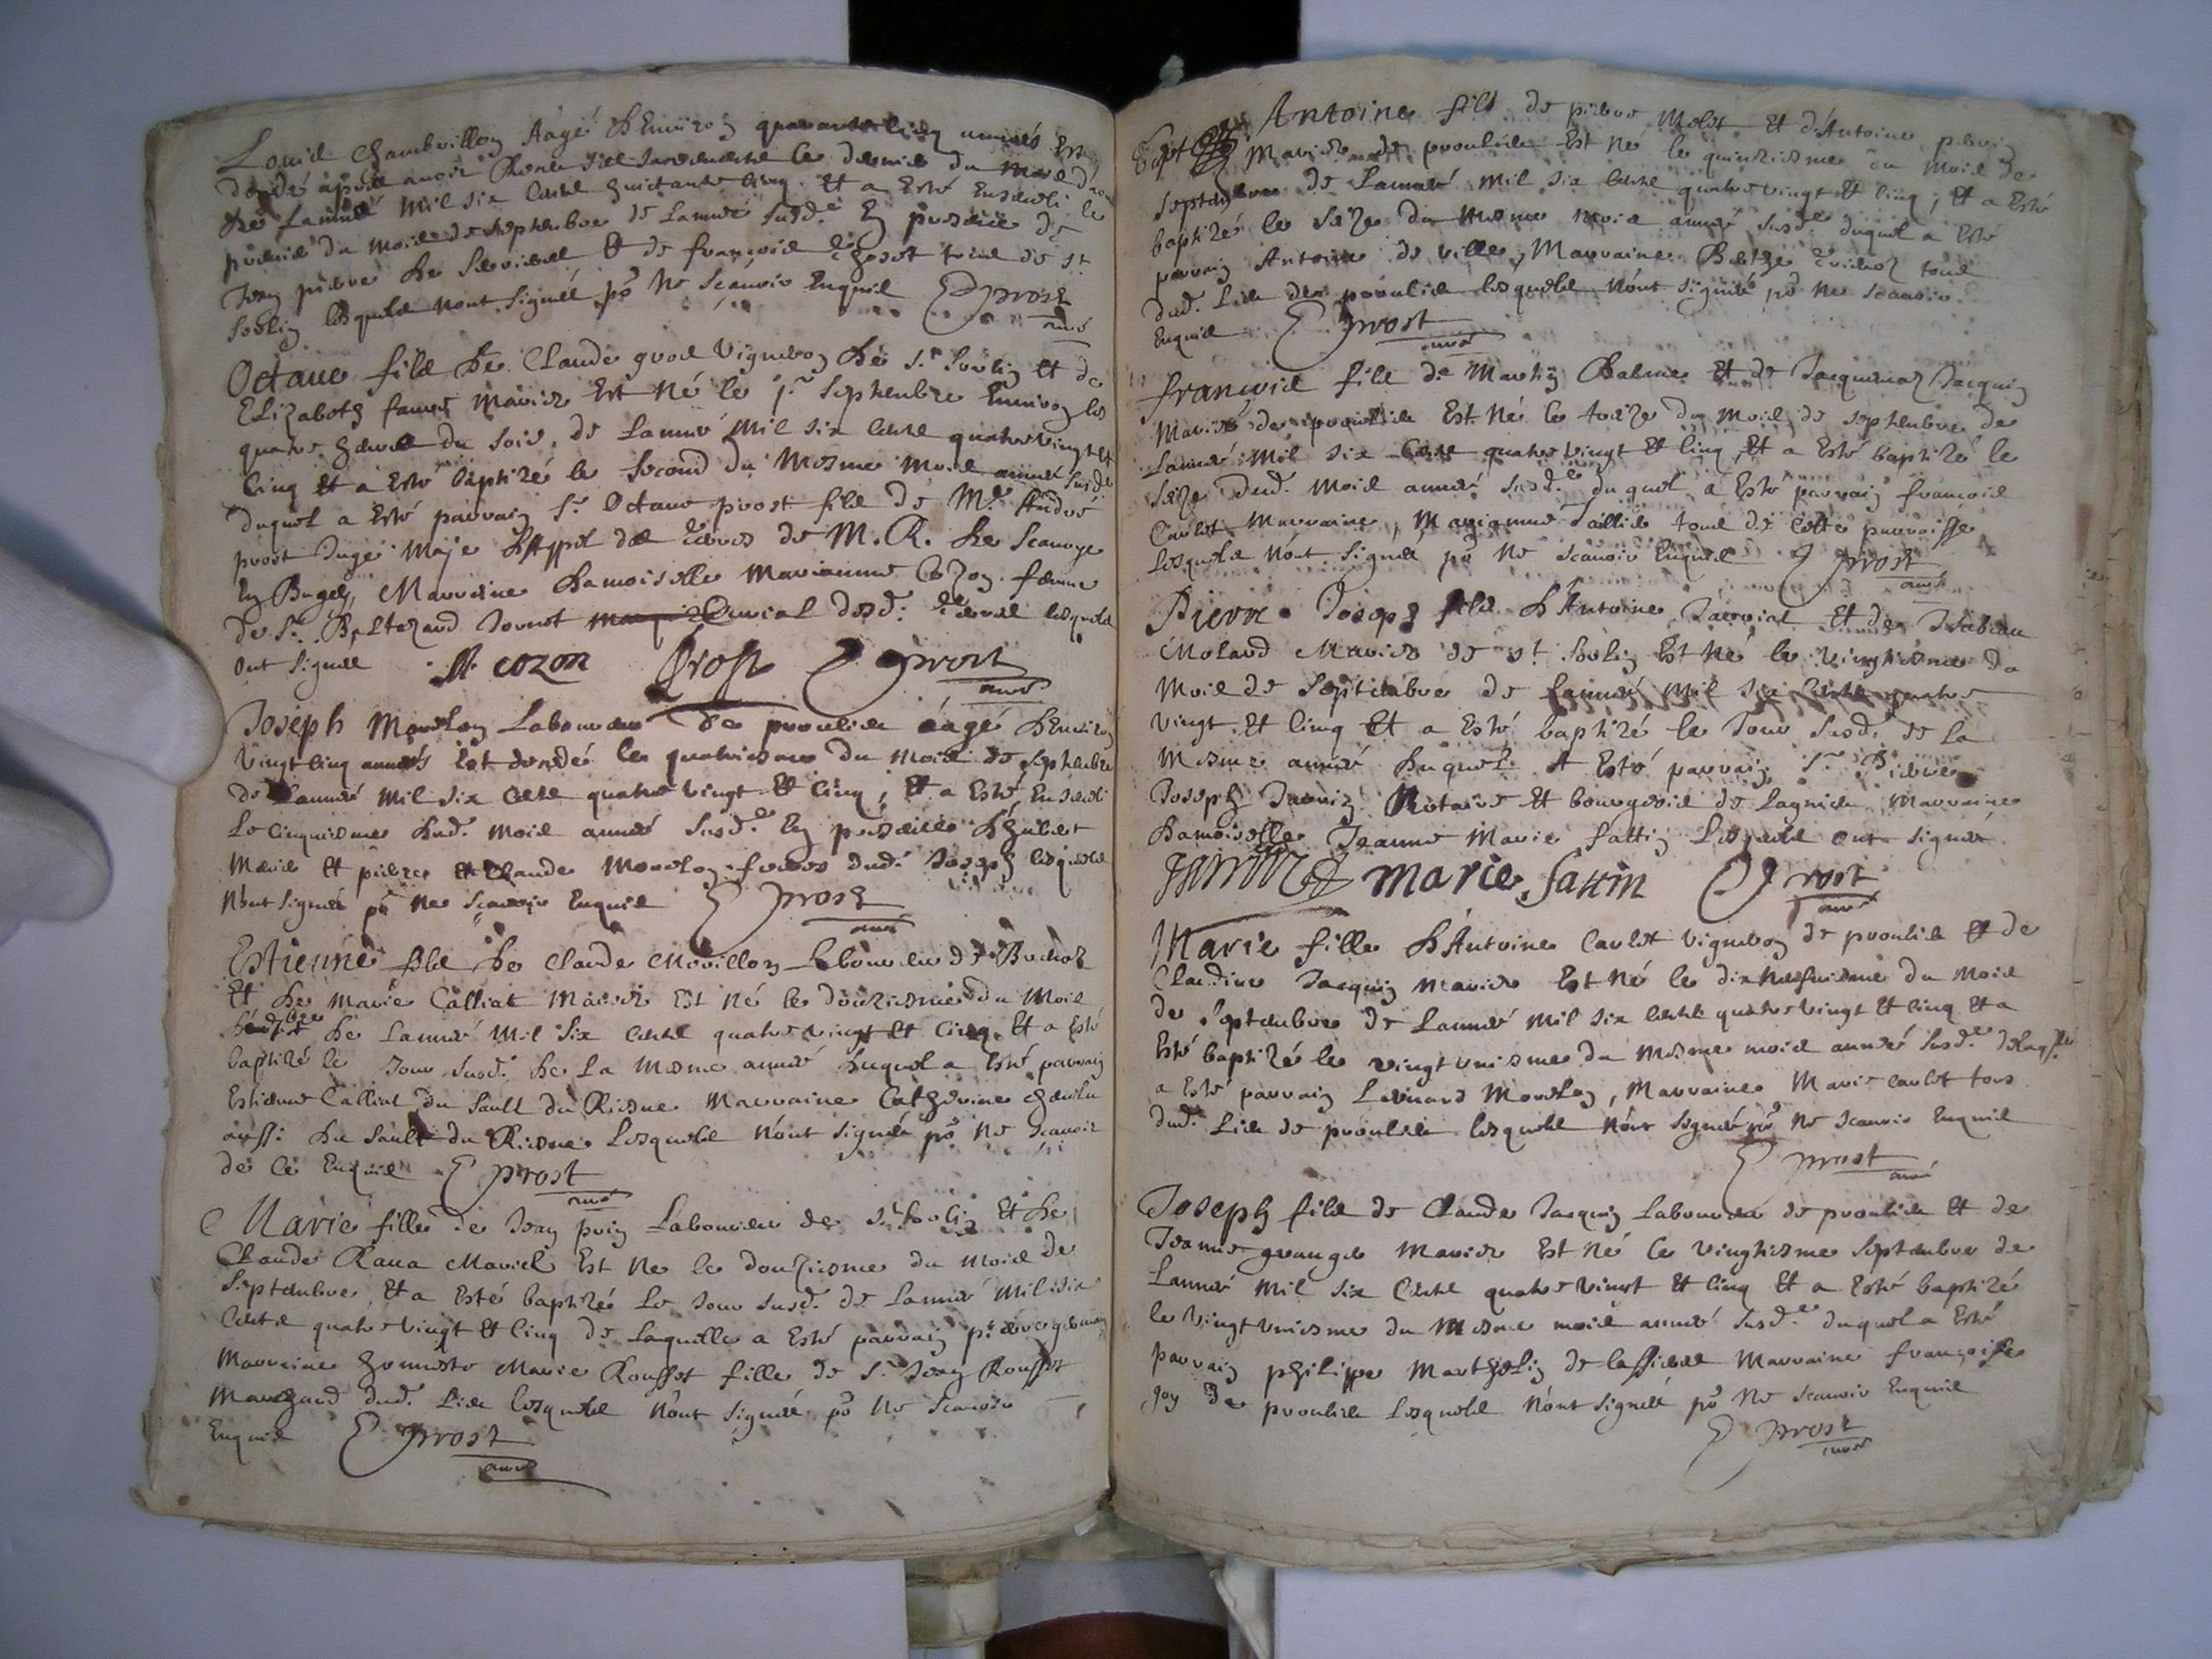 Louis Chambeillon Aagé d'Environ quarante cinq années Est
decedé apres avoir le dernier du mois d'
de Lannee mil six cents huictante cinq Et a Esté Ensevli le
premier du mois de septembre de Lannee susd.e En presence de
Jean pierre de Et de françois tous de st
Sorlin lesquels nont signés po ne scavoir Enquis E Prost
curé
Octave fils de Claude gros Vigneron de st Sorlin Et de
Elizabeth Mariez Est né le pr Septembre Environ les
quatre heures du soir, de Lannee mil six cents quatrevingt et
cinq Et a Esté baptizé le second du mesme mois année susd.e
duquel a Esté parrain sr Octave prost fils de Mr Andre
prost Juge Maje des terres de M. R. de Scavoye
En Bugey, Marraine damoiselle Marianne Cozon femme
de sr Baltezard Jornet desd. terres lesquels
ont signes M cozon Prost E Prost
curé
Joseph Laboureur de proulieu aagé d'Environ
Vingt cinq années Est decedé le quatriesme du mois de septembre
de Lannee mil six cents quatre vingt Et cinq ; Et a Esté Ensevli
Le cinquiesme dud. mois année susd.e En presence d'hubert
Et pierre et Claude freres dud. Joseph lesquels
N'ont signés po ne scavoir Enquis E Prost
curé
Estienne fils de Claude Movillon Laboureur de
Et de Marie Calliat Mariez Est né le douziesme du mois
de 7bre de Lannee mil six cents quatre vingt Et cinq Et a Esté
baptizé le Jour susd. de La mesme année duquel a Esté parrain
Estienne Calliat du Sault du Riesne Marraine Catherine
aussi du Sault du Riesne Lesquels N'ont signés po ne scavoir
de ce Enquis E Prost
curé
Marie fille de Jean Laboureur de st Sorlin Et de
Claude Rava Mariés Est Née le douziesme du mois de
Septembre, Et a Esté baptizée Le Jour susd. de Lannee mil six
cents quatre vingt Et cinq de Laquelle a Esté parrain
Marraine honneste Marie Rousset fille de sr Jean Rousset
Marchand dud. Lieu lesquels N'ont signés po ne scavoir
Enquis E Prost
curé
Antoine fils de pierre Molet Et d'Antoine
Mariez de proulieu Est Né le quinziesme du mois de
Septembre de Lannee mil six cents quatre vingt Et cinq ; Et a Esté
baptizé le seize du mesme mois année susd.e duquel a Esté
parrain Antoine de ville, Marraine tous
dud. Lieu de proulieu lesquels N'ont signés po ne scavoir
Enquis E Prost
curé
françois fils de Martin Balme Et de Jacquemaz Jacquin
Mariez de proulieu Est Né le treize du mois de septembre de
Lannee mil six cents quatre vingt Et cinq Et a Esté baptizé le
seize dud. mois année susd.e duquel a Esté parrain françois
Carlet Marraine, Marianne Taillie tous de cette parroisse
lesquels N'ont signés po ne scavoir Enquis E Prost
curé
Pierre Joseph fils d'Antoine Et de Isabeau
Molard Mariez de st Sorlin Est Né le vingtiesme du
mois de Septembre de Lannee mil six cents quatre
vingt Et cinq Et a Esté baptizé le Jour susd. de La
mesme année duquel A Esté parrain sr Pierre
Joseph Notaire Et bourgeois de Lagnieu Marraine
damoiselle Jeanne Marie fattin Lesquels ont signés
marie fattin E Prost
curé
Marie fille d'Antoine Carlet Vigneron de proulieu Et de
Claudine Jacquin Mariez Est Née le dix neufviesme du mois
de Septembre de Lannee mil six cents quatre vingt Et cinq Et a
Esté baptizée le vingt uniesme du mesme mois année susd.e de laqlle
a Esté parrain Leonard , Marraine Marie Carlet tous
dud. Lieu de proulieu lesquels N'ont signés po ne scavoir Enquis
E Prost
curé
Joseph fils de Claude Jacquin Laboureur de proulieu Et de
Jeanne grange Mariez Est Né le Vingtiesme Septembre de
Lannee mil six cents quatre vingt Et cinq Et a Esté baptizé
le Vingt uniesme du mesme mois année susd.e duquel a Esté
parrain philippe Marthelin de Marraine françoise
Joy de proulieu Lesquels N'ont signés po ne scavoir Enquis
E Prost
curé